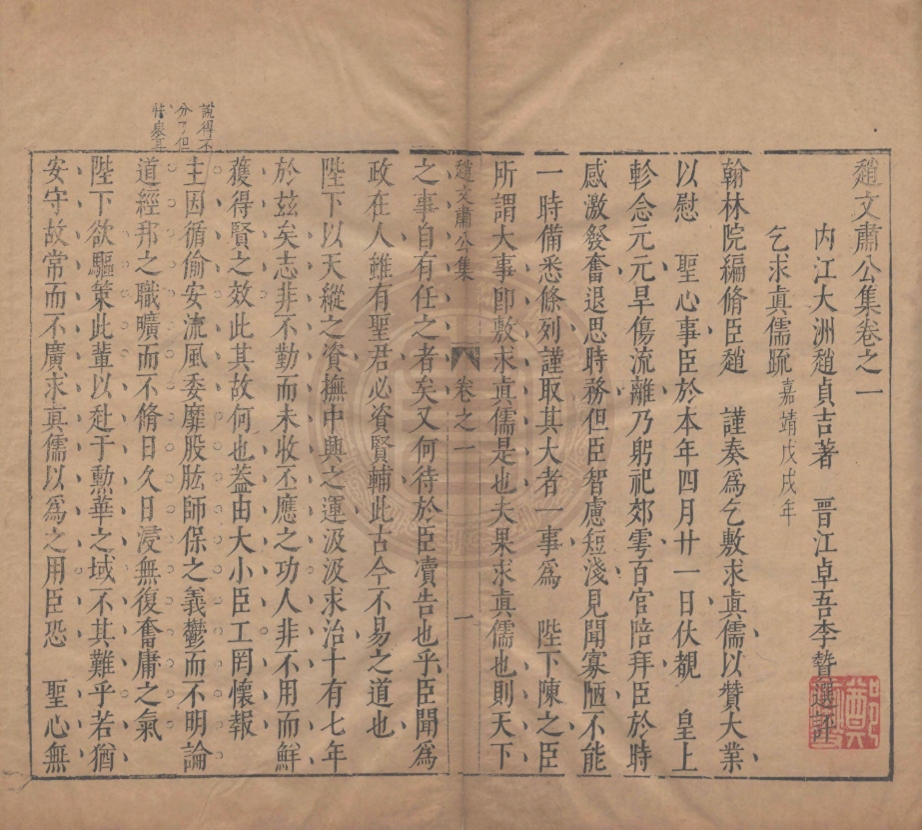 趙文肅公集卷之一
內江大洲趙貞吉著　晋江卓吾李贄選評
乞求眞儒疏嘉靖戊戌年
翰林院編脩臣趙　謹奏爲乞敷求眞儒以贊大業
以慰　聖心事臣於本年四月廿一日伏覩　皇上
軫念元元旱傷流離乃躬祀郊雩百官陪拜臣於時
感激發奮退思時務但臣智慮短淺見聞寡陋不能
一時備悉條列謹取其大者一事爲　陛下陳之臣
所謂大事卽敷求眞儒是也夫果求眞儒也則天下
趙文肅公集　卷之一　一
之事自有任之者矣又何待於臣瀆告也乎臣聞爲
政在人雖有聖君必資賢輔此古今不易之道也
陛下以天縱之資撫中興之運汲汲求治十有七年
於兹矣志非不勤而未收丕應之功人非不用而鮮
獲得賢之效此其故何也葢由大小臣工罔懷報
說得不
分了但
主因循偷安流風委靡股肱師保之義鬱而不明論
道經邦之職曠而不脩日久日浸無復奮庸之氣
陛下欲驅策此輩以赴于勳華之域不其難乎若猶
安守故常而不廣求眞儒以爲之用臣恐　聖心無